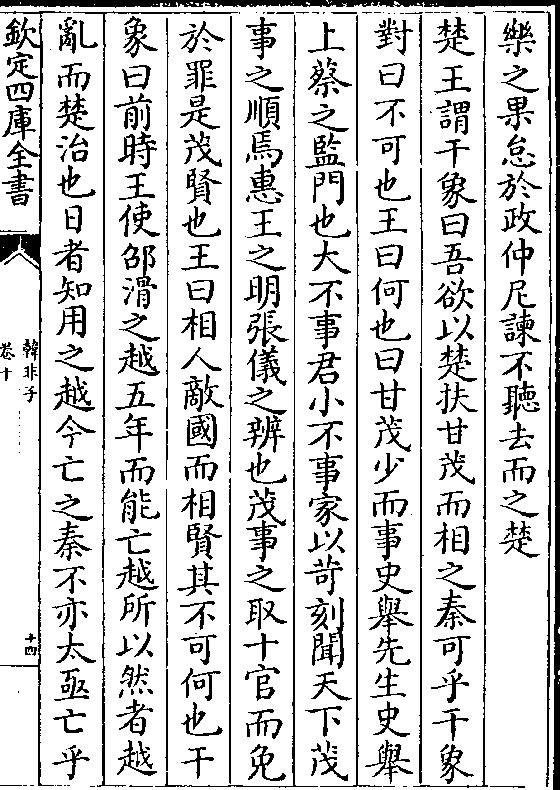 樂之果怠於政仲尼諫不聽去而之楚
楚王謂干象曰吾欲以楚扶甘茂而相之秦可乎干象
對曰不可也王曰何也曰甘茂少而事史舉先生史舉
上蔡之監門也大不事君小不事家以苛刻聞天下茂
事之順焉惠王之明張儀之辨也茂事之取十官而免
於罪是茂賢也王曰相人敵國而相賢其不可何也干
象曰前時王使邵滑之越五年而能亡越所以然者越
亂而楚治也日者知用之越今亡之秦不亦太亟亡乎
欽定四庫全書
韓非子
卷十
十四